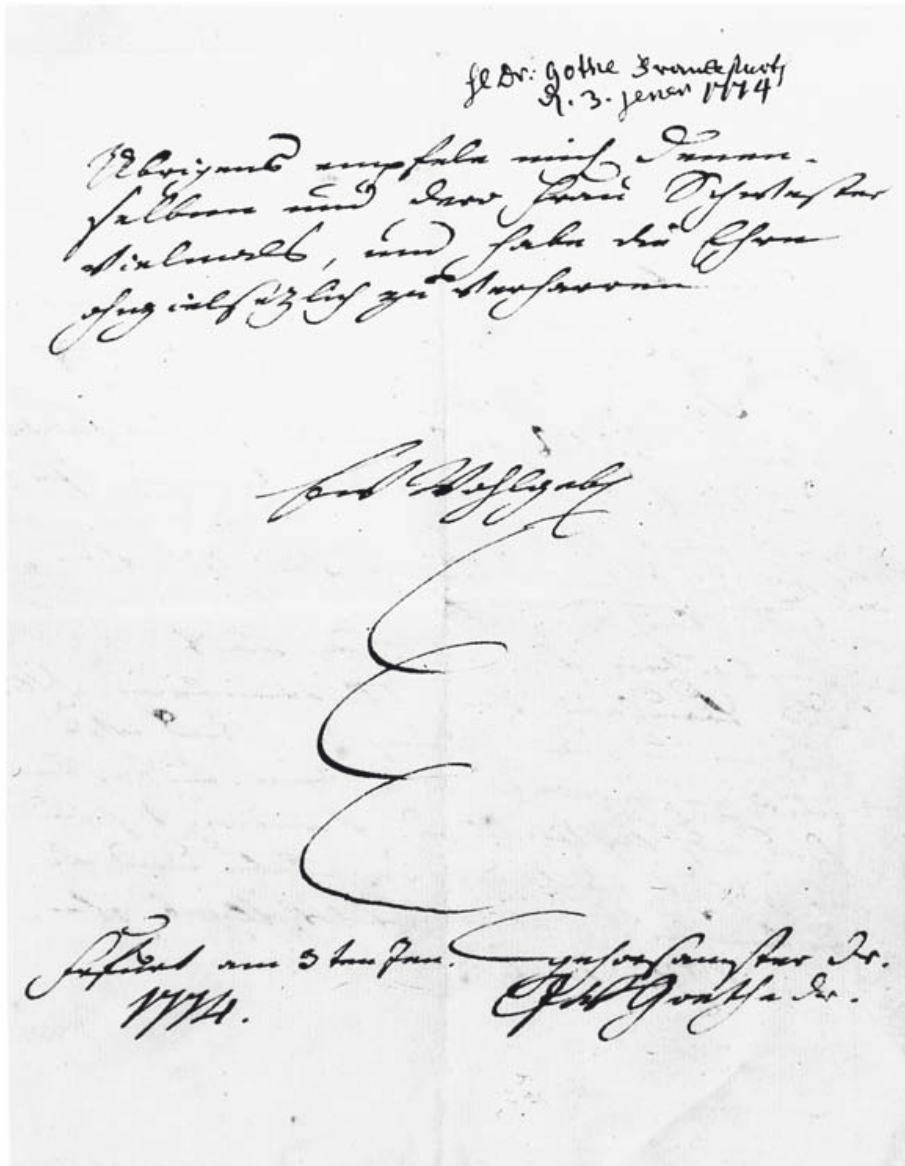 H Dr: Gothe Franckfurth
d. 3. Jener 1774
Übrigens empfele mich Denen-
selben und dero Frau Schwester
Vielmals, und habe die Ehre
ohnzielsetzlich zu verharren
Ew Wohlgeb
am 3ten Jen. gehorsamster Dr.
1774. Goethe Dr.